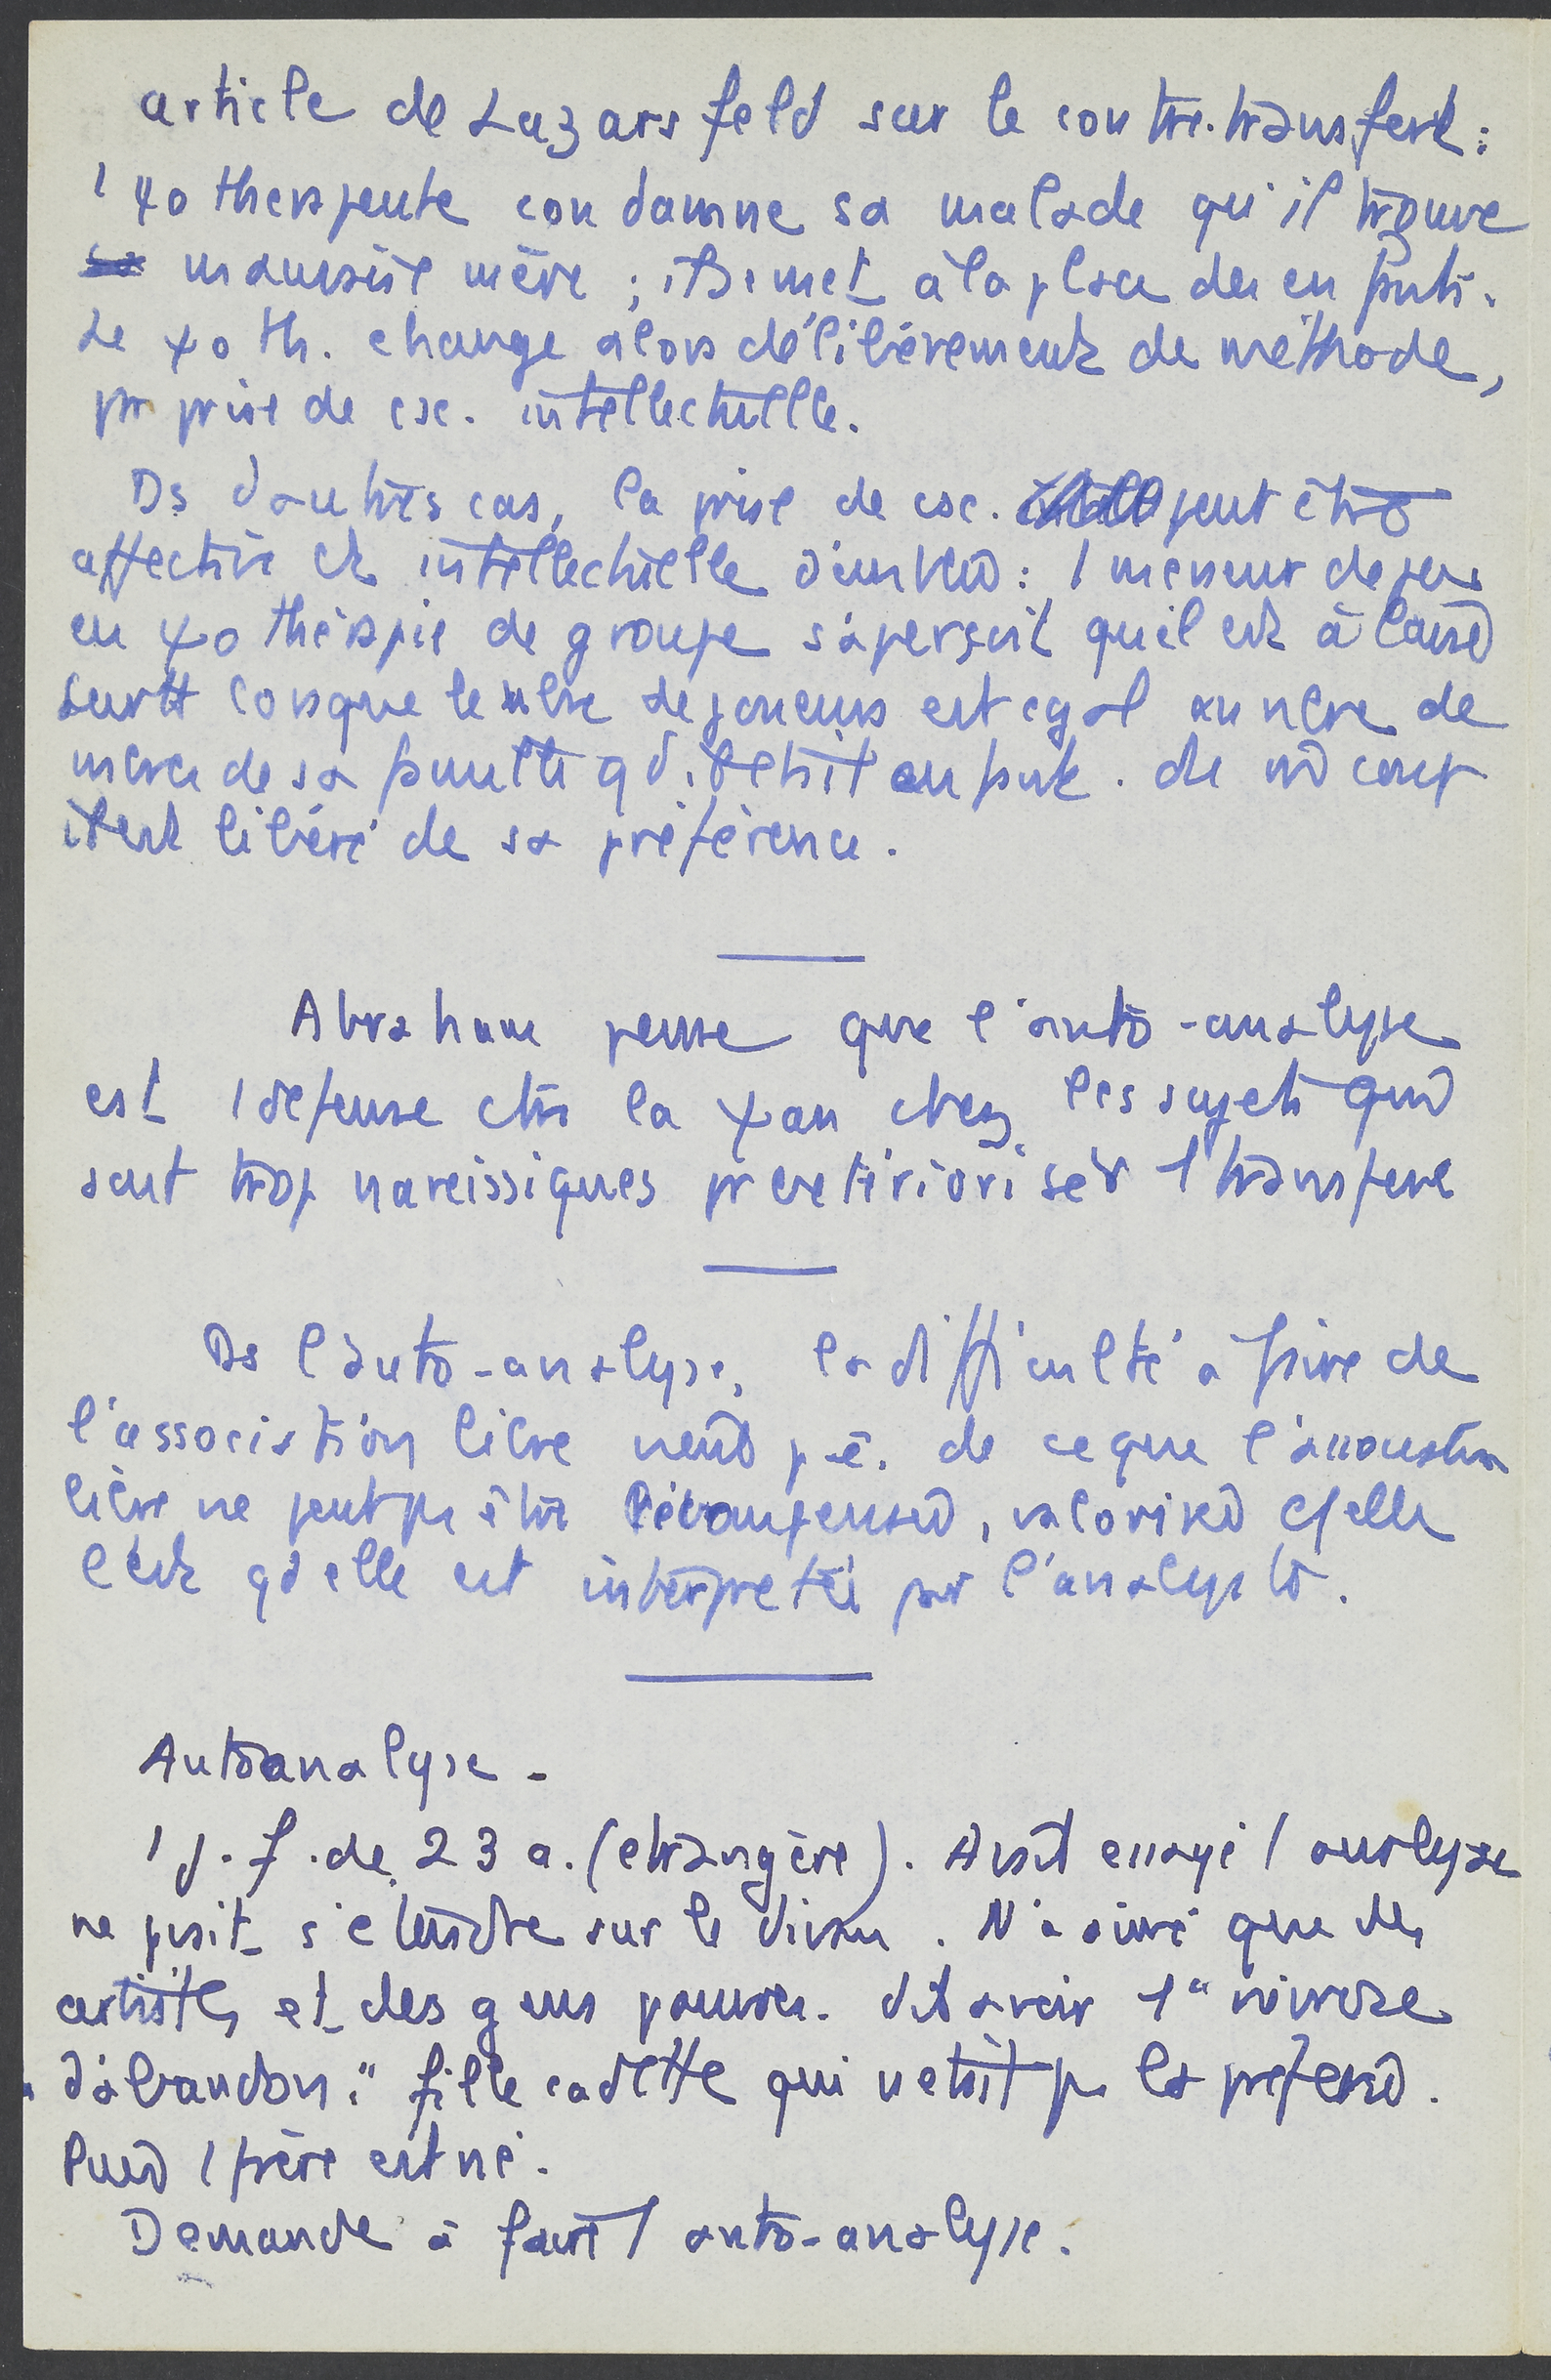 article de Lazarsfeld sur le contre-transfert :
1 ψothérapeute condamne sa malade qu'il trouve
mauvaise mère ; il se met à la place des enfants.
Le ψoth. change alors délibérément de méthode,
pr prise de csc. intellectuelle.
Ds d'autres cas, la prise de csc. peut être
affective et intellectuelle d'emblée : 1 meneur de jeu
en ψothérapie de groupe s'aperçoit qu'il est à l'aise
surtt lorsque le nbre de joueurs est égal au nbre de
mbres de sa famille qd il était enfant. du coup
il est libéré de sa préférence.
Abraham pense que l'auto-analyse
est 1 défense ctre la ψan chez les sujets qui
sont trop narcissiques pr extérioriser 1 transfert
Ds l'auto-analyse, la difficulté à faire de
l'association libre vient p-ê. de ce que l'association
libre ne peut pas être récompensée, valorisée cf elle
l'est qd elle est interprétée par l'analyste.
Autoanalyse -
1 j. f. de 23 a. (étrangère). Avait essayé 1 analyse
ne pvait s'étendre sur le divan. N'a aimé que des
artistes et des gens pauvres. dit avoir 1 "névrose
d'abandon." fille cadette qui n'était pas la préférée.
Puis 1 frère est né.
Demande à faire 1 auto-analyse.